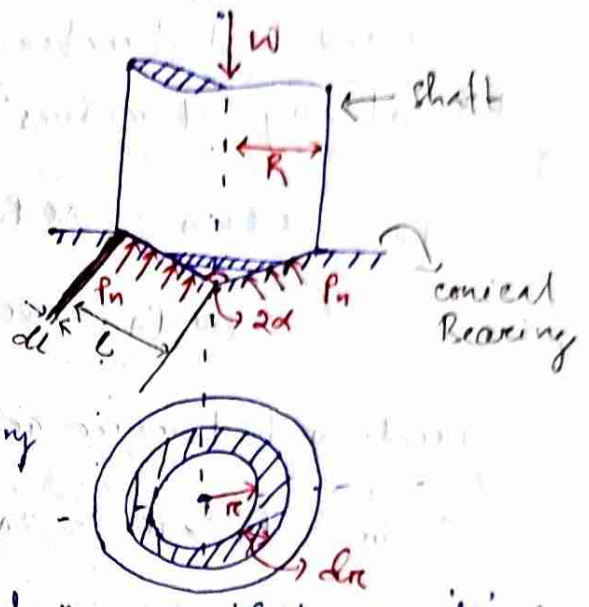 W
shaft
R
Pn
Pn
2α
conical
Bearing
dl
l
r
dr